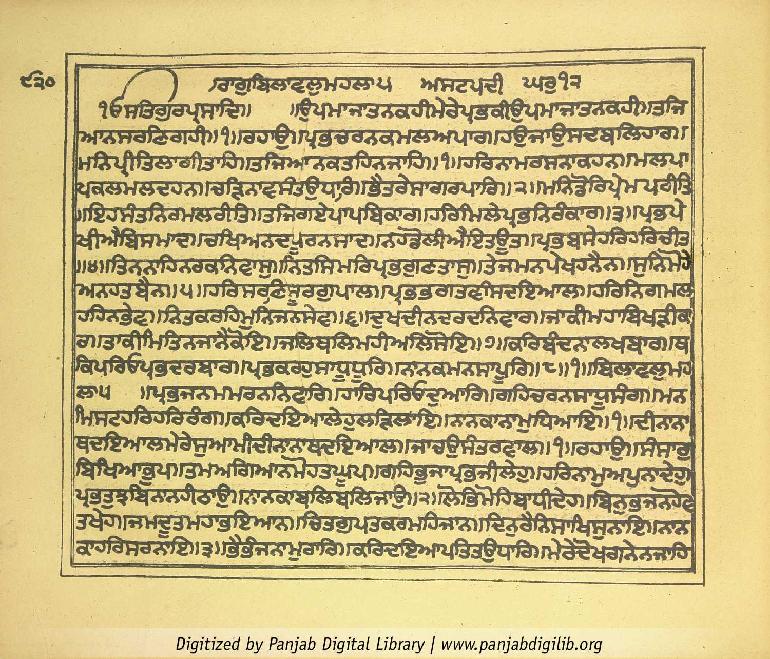 ੯੩੦
ਰਾਗੁਬਿਲਾਵਲੁਮਹਲਾ੫ ਅਸਟਪਦੀ ਘਰੁ੧੨
੧ੳਸਤਿਗੁਰਪ੍ਰਸਾਦਿ॥ ॥ਉਪਮਾਜਾਤਨਕਹੀਮੇਰੇਪ੍ਰਭਕੀਉਪਮਾਜਾਤਨਕਹੀ॥ਤਜਿ
ਆਨਸਰਣਿਗਹੀ॥੧॥ਰਹਾਉ॥ਪ੍ਰਭਚਰਨਕਮਲਅਪਾਰ॥ਹਉਜਾਉਸਦਬਲਿਹਾਰ॥
ਮਨਿਪ੍ਰੀਤਿਲਾਗੀਤਾਹਿ॥ਤਜਿਆਨਕਤਹਿਨਜਾਹਿ॥੧॥ਹਰਿਨਾਮਰਸਨਾਕਹਨ॥ਮਲਪਾ
ਪਕਲਮਲਦਹਨ॥ਚੜਿਨਾਵਸੰਤਉਧਾਰਿ॥ਭੈਤਰੇਸਾਗਰਪਾਰਿ॥੨॥ਮਨਿਡੋਰਿਪ੍ਰੇਮਪਰੀਤਿ
॥ਇਹਸੰਤਨਿਰਮਲਰੀਤਿ॥ਤਜਿਗਏਪਾਪਬਿਕਾਰ॥ਹਰਿਮਿਲੇਪ੍ਰਭਨਿਰੰਕਾਰ॥੩॥ਪ੍ਰਭਪੇ
ਖੀਐਬਿਸਮਾਦ॥ਚਖਿਅਨਦਪੂਰਨਸਾਦ॥ਨਹਡੋਲੀਐਇਤਊਤ॥ਪ੍ਰਭਬਸੇਹਰਿਹਰਿਚੀਤ
॥੪॥ਤਿਨਨਾਹਿਨਰਕਨਿਵਾਸੁ॥ਨਿਤਸਿਮਰਿਪ੍ਰਭਗੁਣਤਾਸੁ॥ਤੇਜਮਨਪੇਖਹਨੈਨ॥ਸੁਨਿਮੋਹੇ
ਅਨਹਤਬੈਨ॥੫॥ਹਰਿਸਰਣਿਸੂਰਗੁਪਾਲ॥ਪ੍ਰਭਭਗਤਵਸਿਦਇਆਲ॥ਹਰਿਨਿਗਮਲ
ਹਹਿਨਭੇਵ॥ਨਿਤਕਰਹਿਮੁਨਿਜਨਸੇਵ॥੬॥ਦੁਖਦੀਨਦਰਦਨਿਵਾਰ॥ਜਾਕੀਮਹਾਬਿਖੜੀਕਾ
ਰ॥ਤਾਕੀਮਿਤਿਨਜਾਨੈਕੋਇ॥ਜਲਿਥਲਿਮਹੀਅਲਿਸੋਇ॥੭॥ਕਰਿਬੰਦਨਾਲਖਬਾਰ॥ਥ
ਕਿਪਰਿਓਪ੍ਰਭਦਰਬਾਰ॥ਪ੍ਰਭਕਰਹੁਸਾਧੂਧੂਰਿ॥ਨਾਨਕਮਨਸਾਪੂਰਿ॥੮॥੧॥ਬਿਲਾਵਲੁਮਹ
ਲਾ੫ ॥ਪ੍ਰਭਜਨਮਮਰਨਨਿਵਾਰਿ॥ਹਾਰਿਪਰਿਓਦੁਆਰਿ॥ਗਹਿਚਰਨਸਾਧੂਸੰਗ॥ਮਨ
ਮਿਸਟਹਰਿਹਰਿਰੰਗ॥ਕਰਿਦਇਆਲੇਹੁਲੜਿਲਾਇ॥ਨਾਨਕਾਨਾਮੁਧਿਆਇ॥੧॥ਦੀਨਾਨ
ਥਦਇਆਲਮੇਰੇਸੁਆਮੀਦੀਨਾਨਾਥਦਇਆਲ॥ਜਾਚਉਸੰਤਰਵਾਲ॥੧॥ਰਹਾਉ॥ਸੰਸਾਰੁ
ਬਿਖਿਆਕੂਪ॥ਤਮਅਗਿਆਨਮੋਹਤਘੂਪ॥ਗਹਿਭੁਜਾਪ੍ਰਭਜੀਲੇਹੁ॥ਹਰਿਨਾਮੁਅਪੁਨਾਦੇਹੁ॥
ਪ੍ਰਭਤੁਝਬਿਨਾਨਹੀਠਾਉ॥ਨਾਨਕਾਬਲਿਬਲਿਜਾਉ॥੨॥ਲੋਭਿਮੋਹਿਬਾਧੀਦੇਹ॥ਬਿਨੁਭਜਨਹੋਵ
ਤਖੇਹ॥ਜਮਦੂਤਮਹਾਭਇਆਨ॥ਚਿਤਗੁਪਤਕਰਮਹਿਜਾਨ॥ਦਿਨੁਰੈਨਿਸਾਖਿਸੁਨਾਇ॥ਨਾਨ
ਕਾਹਰਿਸਰਨਾਇ॥੩॥ਭੈਭੰਜਨਾਮੁਰਾਰਿ॥ਕਰਿਦਇਆਪਤਿਤਉਧਾਰਿ॥ਮੇਰੇਦੋਖਗਨੇਨਜਾਹਿ
Digitized by Panjab Digital Library | www.panjabdigilib.org